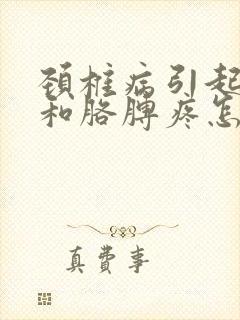 颈椎病引起
和胳膊疼怎
真费事